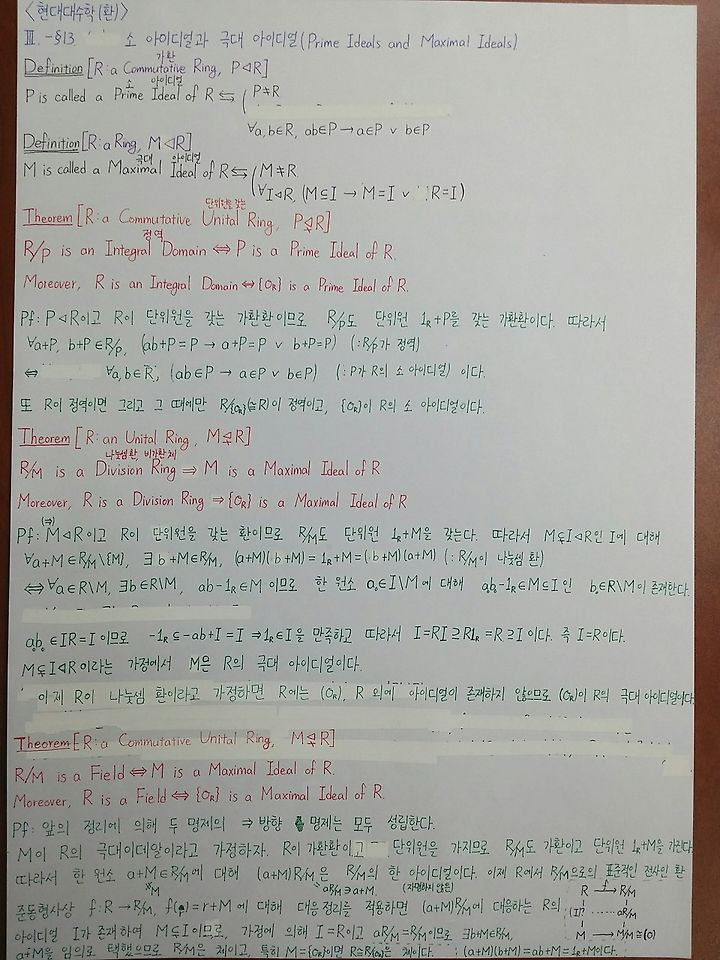 <현대대수학(환)>
Ⅲ.-§13 소 아이디얼과 극대 아이디얼(Prime Ideals and Maximal Ideals)
가환
Definition [R:a Commutative Ring, P◁R]
소 아이디얼
P is called a Prime Ideal of R ⇆ ( P≠R
∀a,b∈R, ab∈P → a∈P ∨ b∈P
Definition [R:a Ring, M◁R]
극대 아이디얼
M is called a Maximal Ideal of R ⇆ ( M≠R
∀I◁R, (M⊆I → M=I ∨ R=I)
단위원을 갖는
Theorem [R:a Commutative Unital Ring, P⋪R]
정역
R/P is an Integral Domain ⇔ P is a Prime Ideal of R.
Moreover, R is an Integral Domain ⇔ {0R} is a Prime Ideal of R.
Pf: P◁R이고 R이 단위원을 갖는 가환환이므로 R/P도 단위원 1R+P를 갖는 가환환이다. 따라서
∀a+P, b+P∈R/P, (ab+P=P → a+P=P ∨ b+P=P) (∵R/P가 정역)
⇔ ∀a,b∈R, (ab∈P → a∈P ∨ b∈P) (∵P가 R의 소 아이디얼) 이다.
또 R이 정역이면 그리고 그 때에만 R/{0R}(≅R)이 정역이고, {0R}이 R의 소 아이디얼이다.
Theorem [R:an Unital Ring, M⋪R]
나눗셈환, 비가환체
R/M is a Division Ring ⇒ M is a Maximal Ideal of R
Moreover, R is a Division Ring ⇒ {0R} is a Maximal Ideal of R
(⇒)
Pf: M◁R이고 R이 단위원을 갖는 환이므로 R/M도 단위원 1R+M을 갖는다. 따라서 M⊊I◁R인 I에 대해
∀a+M∈R/M\{M}, ∃b+M∈R/M, (a+M)(b+M)=1R+M=(b+M)(a+M) (∵R/M이 나눗셈 환)
⇔∀a∈R\M, ∃b∈R\M, ab-1R∈M 이므로 한 원소 a₀∈I\M에 대해 a₀b₀-1R∈M⊆I인 b₀∈R\M이 존재한다.
a₀b₀∈IR=I 이므로 -1R⊆-ab+I=I ⇒1R∈I을 만족하고 따라서 I=RI⊇R1R=R⊇I이다. 즉 I=R이다.
M⊊I◁R이라는 가정에서 M은 R의 극대 아이디얼이다.
이제 R이 나눗셈 환이라고 가정하면 R에는 {0R}, R 외에 아이디얼이 존재하지 않으므로 {0R}이 R의 극대 아이디얼이다
Theorem [R:a Commutative Unital Ring, M⋪R]
R/M is a Field ⇔ M is a Maximal Ideal of R.
Moreover, R is a Field ⇔ {0R} is a Maximal Ideal of R.
Pf: 앞의 정리에 의해 두 명제의 ⇒ 방향 명제는 모두 성립한다.
M이 R의 극대이데알이라고 가정하자. R이 가환환이고 단위원을 가지므로 R/M도 가환이고 단위원 1R+M을 가진다.
따라서 한 원소 a+M∈R/M에 대해 (a+M)R/M은 R/M의 한 아이디얼이다. 이제 R에서 R/M으로의 표준적인 전사인 환
aR/M∋a+M. (자명하지 않은)
준동형사상 f:R→R/M, f(r)=r+M 에 대해 대응정리를 적용하면 (a+M)R/M에 대응하는 R의
아이디얼 I가 존재하여 M⊊I이므로, 가정에 의해 I=R이고 aR/M=R/M이므로 ∃b+M∈R/M,
a+M을 임의로 택했으므로 R/M은 체이고, 특히 M={0R}이면 R≅R/{0R}은 체이다. (a+M)(b+M)=ab+M=1R+M이다.
R f→ R/M
(I? ...... aR/M
M → M/M≅{0}